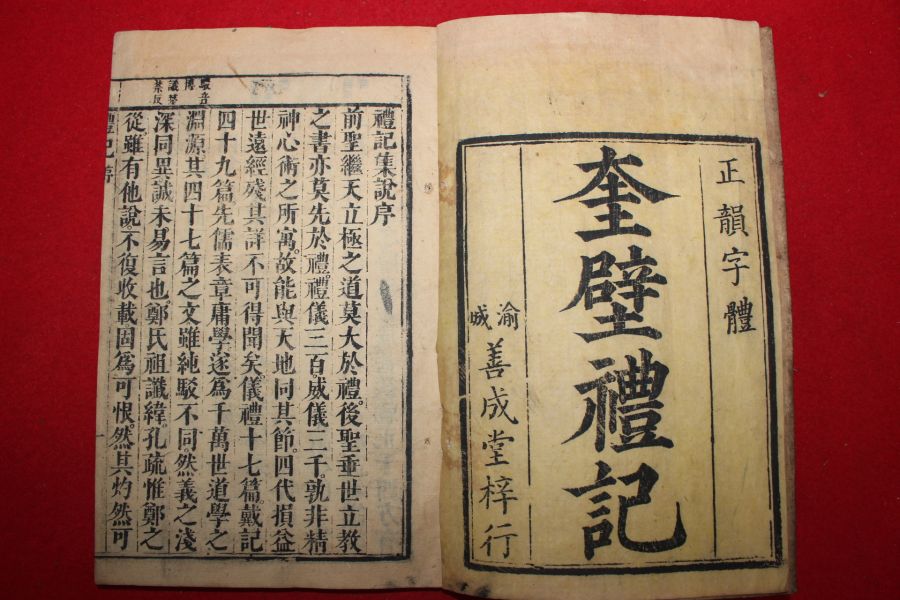 正韻字體
奎壁禮記
渝城
善成堂梓行
禮記集說序
前聖繼天立極之道莫大於禮。後聖垂世立教
之書亦莫先於禮。禮儀三百。威儀三千。孰非精
神心術之所寓。故能與天地同其節。四代損益
世遠經殘。其詳不可得聞矣。儀禮十七篇。戴記
四十九篇。先儒表章庸學。遂為千萬世道學之
淵源。其四十七篇之文雖純駁不同。然義之淺
深同異誠未易言也。鄭氏祖讖緯。孔疏惟鄭之
從雖有他說。不復收載。固為可恨。然其灼然可
禮記 序
一